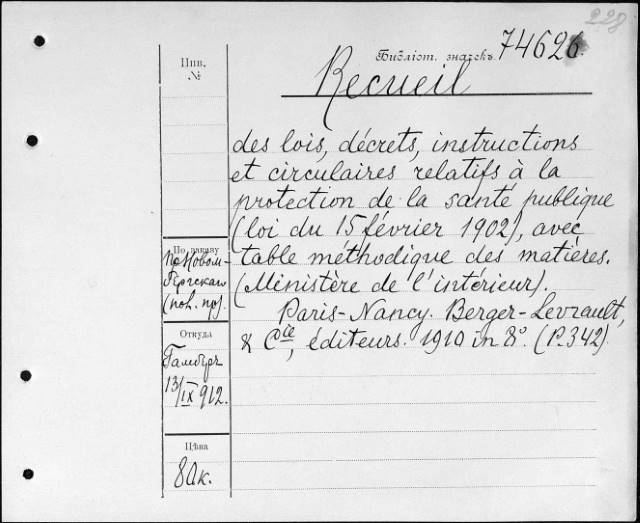 228
Библіот. значекъ 74626.
Recueil
des lois, décrets, instructions
et circulaires relatifs à la
protection de la santé publique
(loi du 15 février 1902), avec
table méthodique des matières.
(Ministère de l'intérieur).
Paris-Nancy. Berger-Levrault,
& Cie, éditeurs. 1910 in 8°. (P. 342)
Инв.
№
По заказу
Откуда
13/IX 912.
Цѣна
80к.